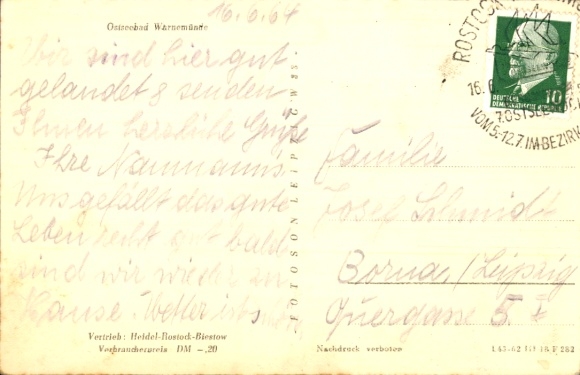 Ostseebad Warnemünde
16.6.64
Wir sind hier gut
gelandet & senden
Ihnen herzliche Grüße
Ihre Naumann's
Uns gefällt das gute
Leben recht gut bald
sind wir wieder zu
Hause. Wetter ist schön
Vertrieb: Heidel-Rostock-Biestow
Verbraucherpreis DM -,20
FOTOSON LEIPZIG W 33
ROSTOCK
16.6
7. OSTSEE
VOM 5.-12.7. IM BEZIRK
DEUTSCHE
DEMOKRATISCHE REPUBLIK
10
Familie
Josef Schmidt
Borna/Leipzig
Quergasse 5. I
Nachdruck verboten